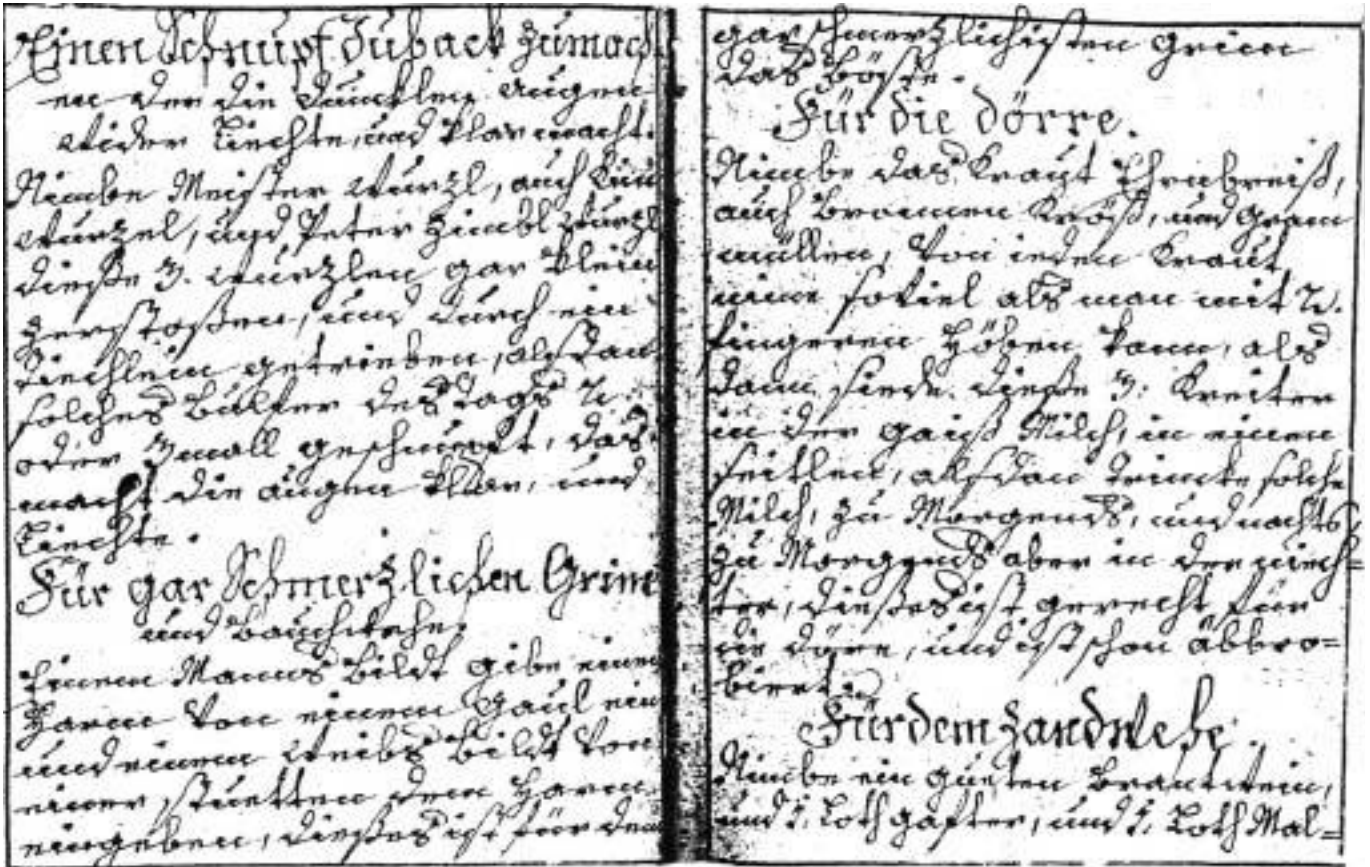 Einen Schnupf Tuback zu mach
en der die duncklen augen
wider liechte, und klar macht.
Nimbe Meister wurzl, auch
wurzel, und Peter zimbl wurzl
dieße 3. wurzlen gar klein
zerstoßen, und durch ein
tiechlein getrieben, alßdan
solches Bulfer des Tags 2.
oder 3mall geschnupft, das
macht die augen klar, und
liechte.
Für gar Schmerzlichen Grime
und bauchwehe.
Einem Manns bildt gibe einen
Harm von einem Gaul ein
und einem weibs bildt von
einer stuetten dem Harm
eingeben, dießes ist für den
gar schmerzlichisten grim
das böste.
Für die dörre.
Nimbe das Kraut Ehrnbreiß,
auch bronnen Kröß, und Gram
müllen, von ieden Kraut
nime soviel als man mit 2.
fingeren höben kann, als
dann siede dieße 3: Kreiter
in der gaiß Milch, in einen
seitlen, alßdan trincke solche
Milch, zu Morgends, und nachts
zu Morgends aber in der niech=
ter, dießes ist gerecht für
die döre, und ist schon abbro=
biert.
Für dem zandwehe.
Nimbe ein gueten brantwein,
und 1. Loth gaffer, und 1. Loth Mal=